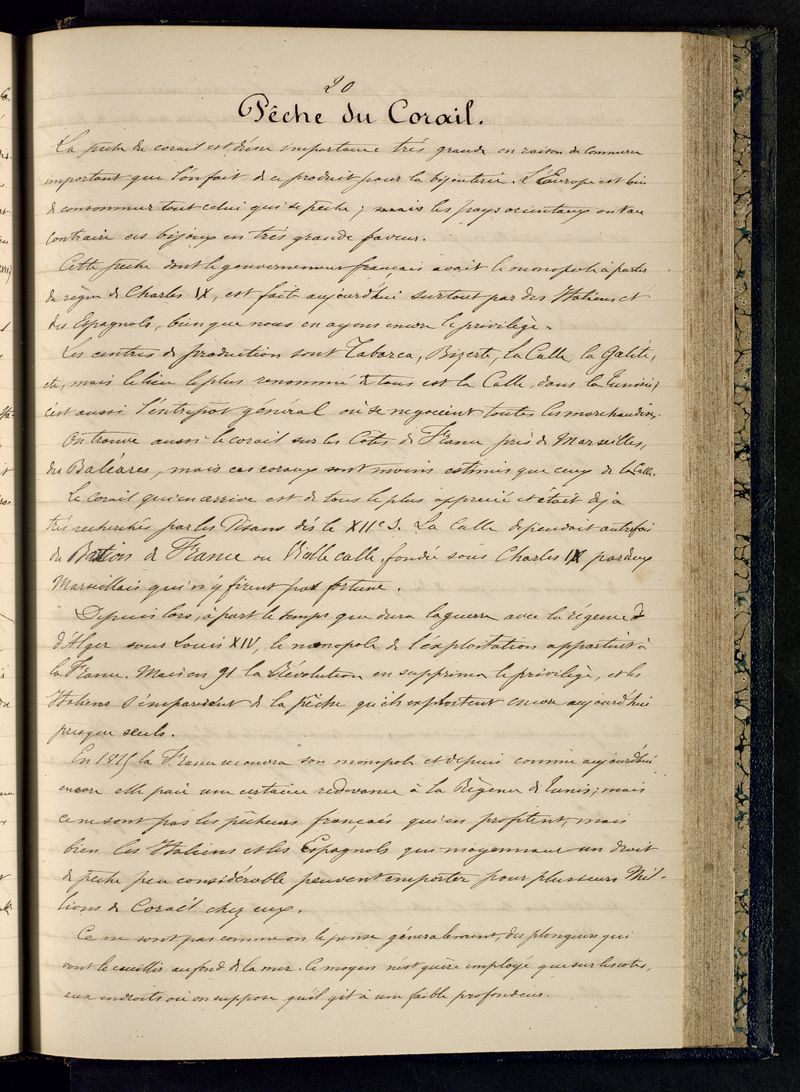 20
Pêche du Corail.
La pêche du corail est d'une importance très grande en raison du commerce
important que l'on fait de ce produit pour la bijouterie. L'Europe est loin
de consommer tout celui qui se pêche; mais les pays orientaux ont au
contraire ces bijoux en très grande faveur.
Cette pêche dont le gouvernement français avait le monopole à partir
du règne de Charles IX, est fait aujourd'hui surtout par des Italiens et
des Espagnols, bien que nous en ayons encore le privilège.
Les centres de production sont Tabarca, Bizerte, la Calle, la Galite,
etc, mais le lieu le plus renommé de tous est la Calle, dans la Tunisie;
c'est aussi l'entrepôt général où se négocient toutes les marchandises.
On trouve aussi le corail sur les Côtes de France près de Marseilles,
des Baléares, mais ces coraux sont moins estimés que ceux de la Calle.
Le Corail qui en arrive est de tous le plus apprécié et était déjà
très recherché par les Pisans dès le XIIe S. La Calle dépendait autrefois
du Bastion de France ou Vieille calle, fondé sous Charles IX par deux
Marseillais qui n'y firent pas fortune.
Depuis lors, à part le temps que dura la guerre avec la régence
d'Alger sous Louis XIV, le monopole de l'exploitation appartint à
la France. Mais en 91 la Révolution en supprima le privilège, et les
Italiens s'emparèrent de la pêche qu'ils exploitent encore aujourd'hui
presque seuls.
En 1815 la France recouvra son monopole et depuis comme aujourd'hui
encore elle paie une certaine redevance à la Régence de Tunis; mais
ce ne sont pas les pêcheurs français qui en profitent, mais
bien les Italiens et les Espagnols qui moyennant un droit
de pêche peu considérable peuvent emporter pour plusieurs Mil-
lions de Corail chez eux.
Ce ne sont pas comme on le pense généralement, des plongeurs qui
vont le cueillir au fond de la mer. Ce moyen n'est guère employé que sur les côtes,
aux endroits où on suppose qu'il gît à une faible profondeur.